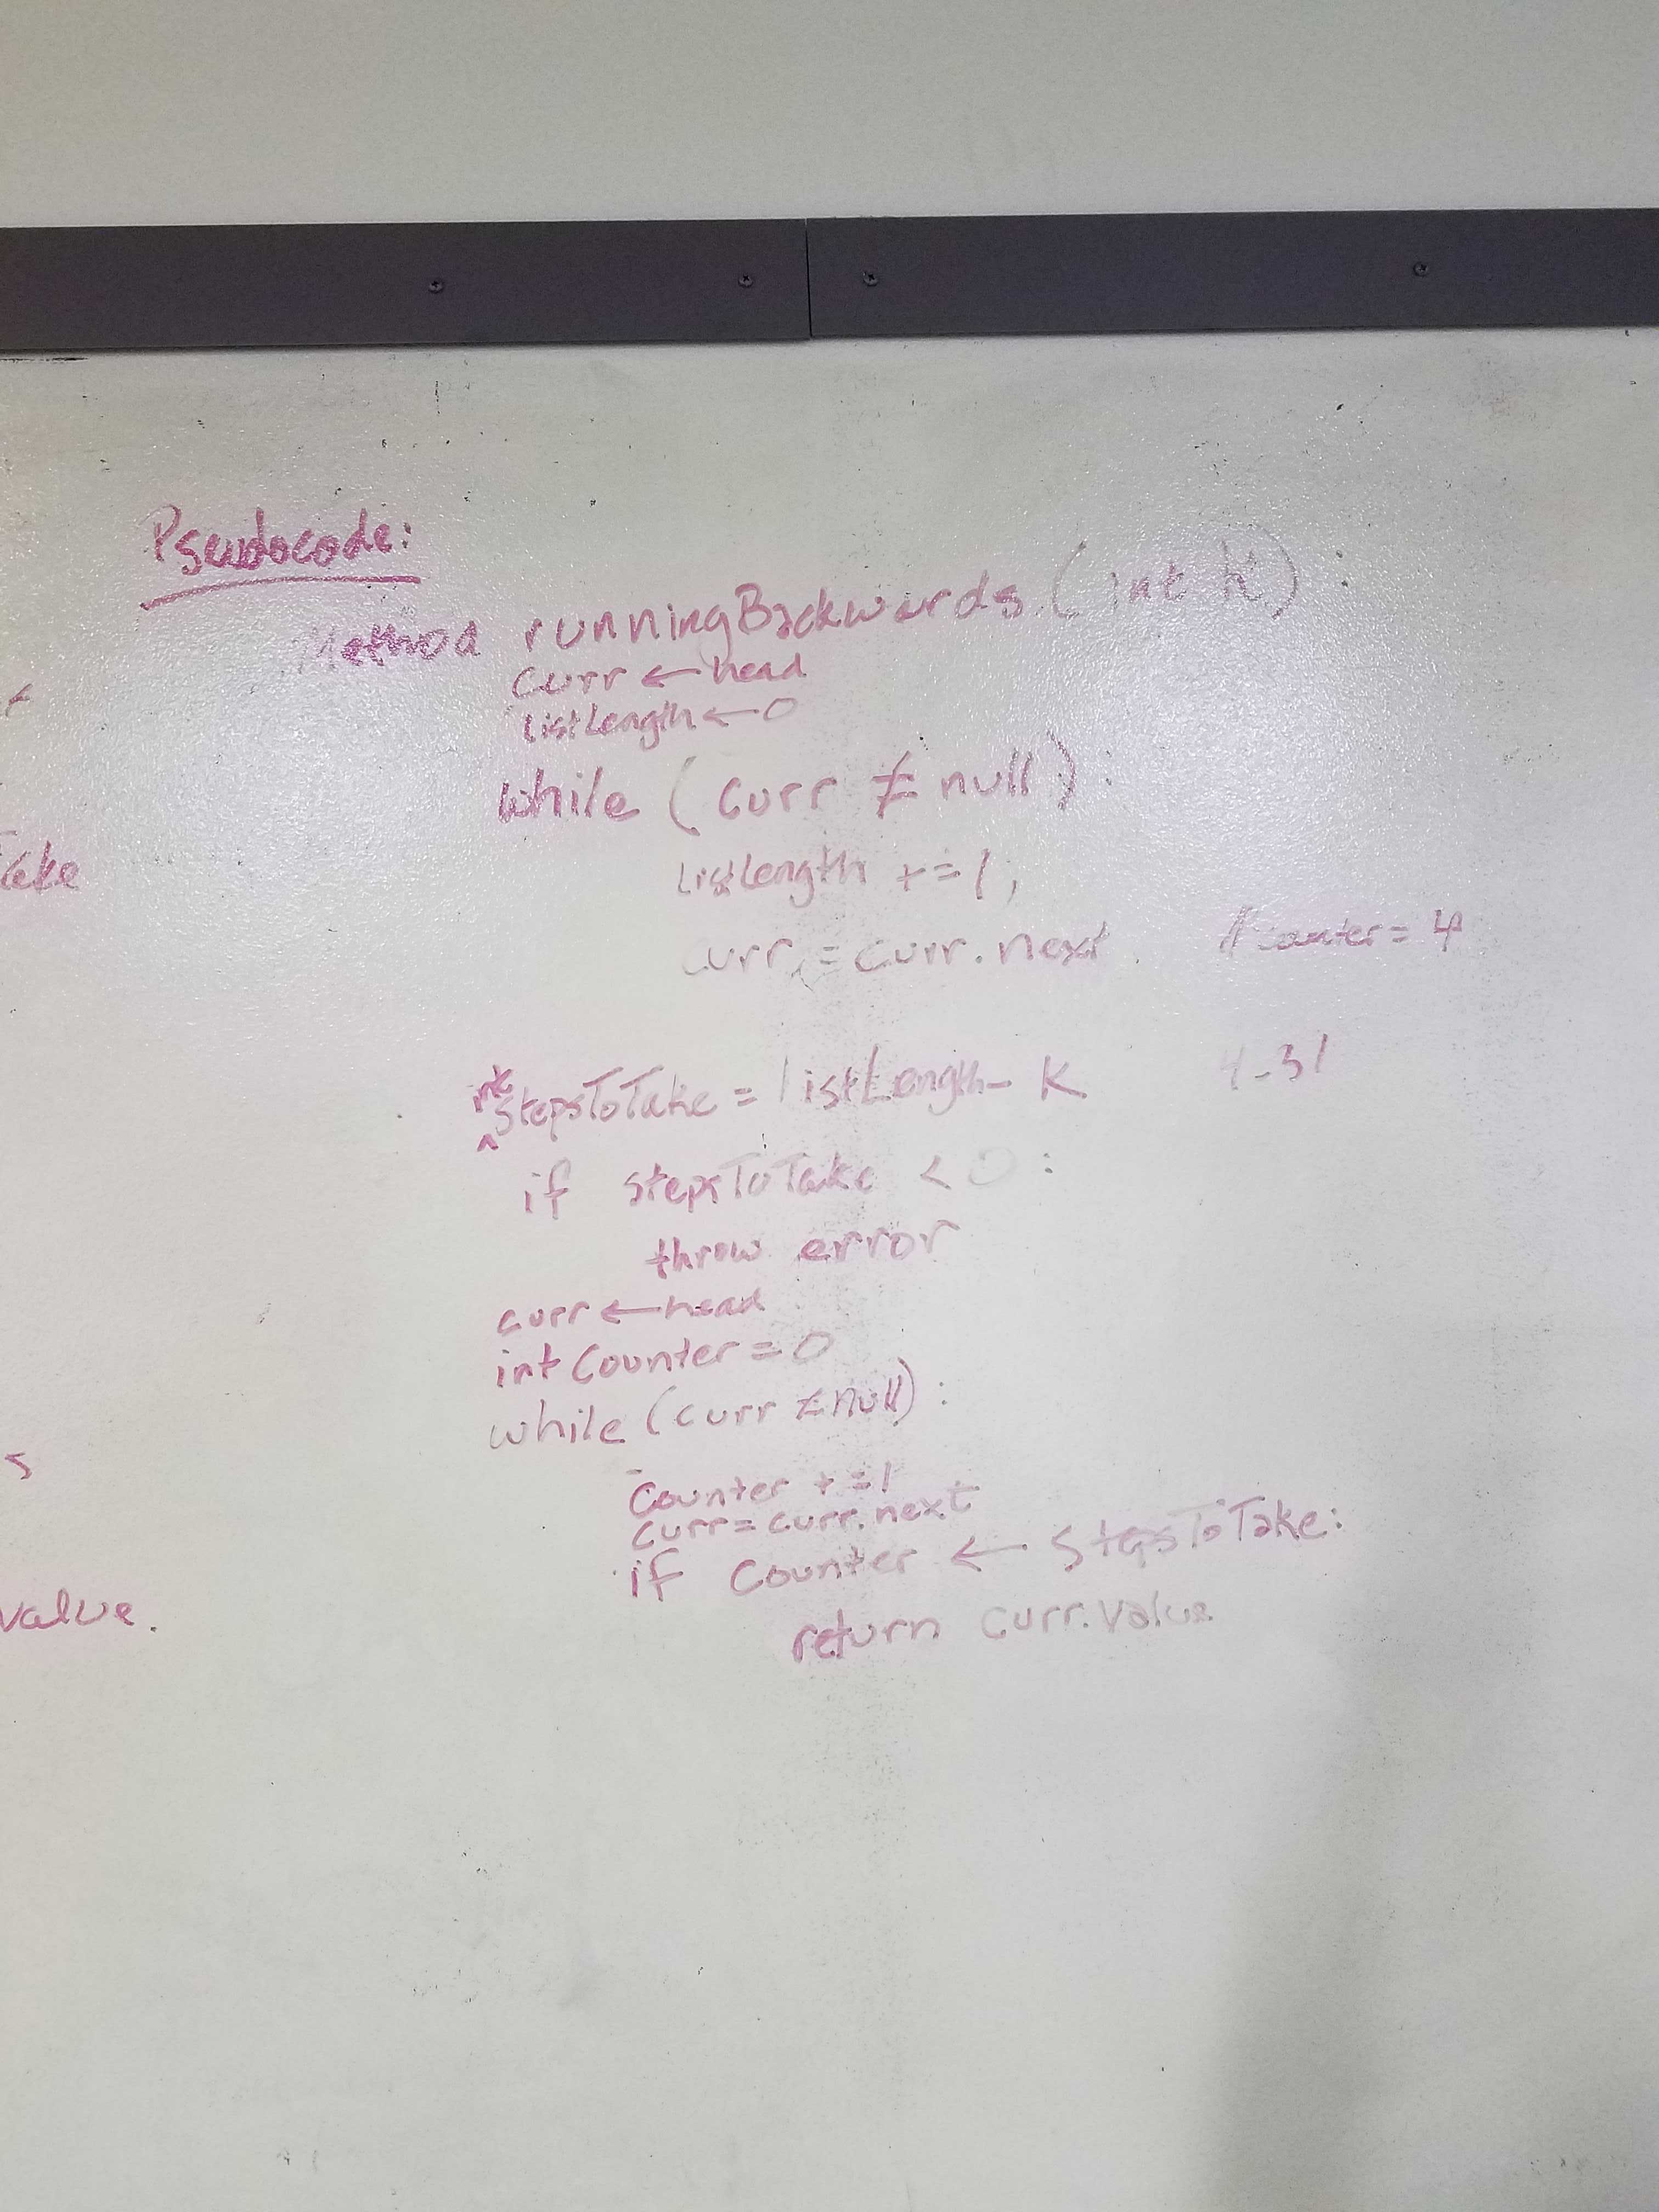 Pseudocode:
Method runningBackwards (int k):
curr ← head
listLength ← 0
while (curr ≠ null):
listLength += 1;
Take
curr = curr.next // counter = 4
int
stepsToTake = listLength - K 4-31
^
if stepsToTake < 0:
throw error
curr ← head
int Counter = 0
while (curr ≠ null):
s
Counter += 1
curr = curr.next
if Counter ← StepsToTake:
value.
return curr.value